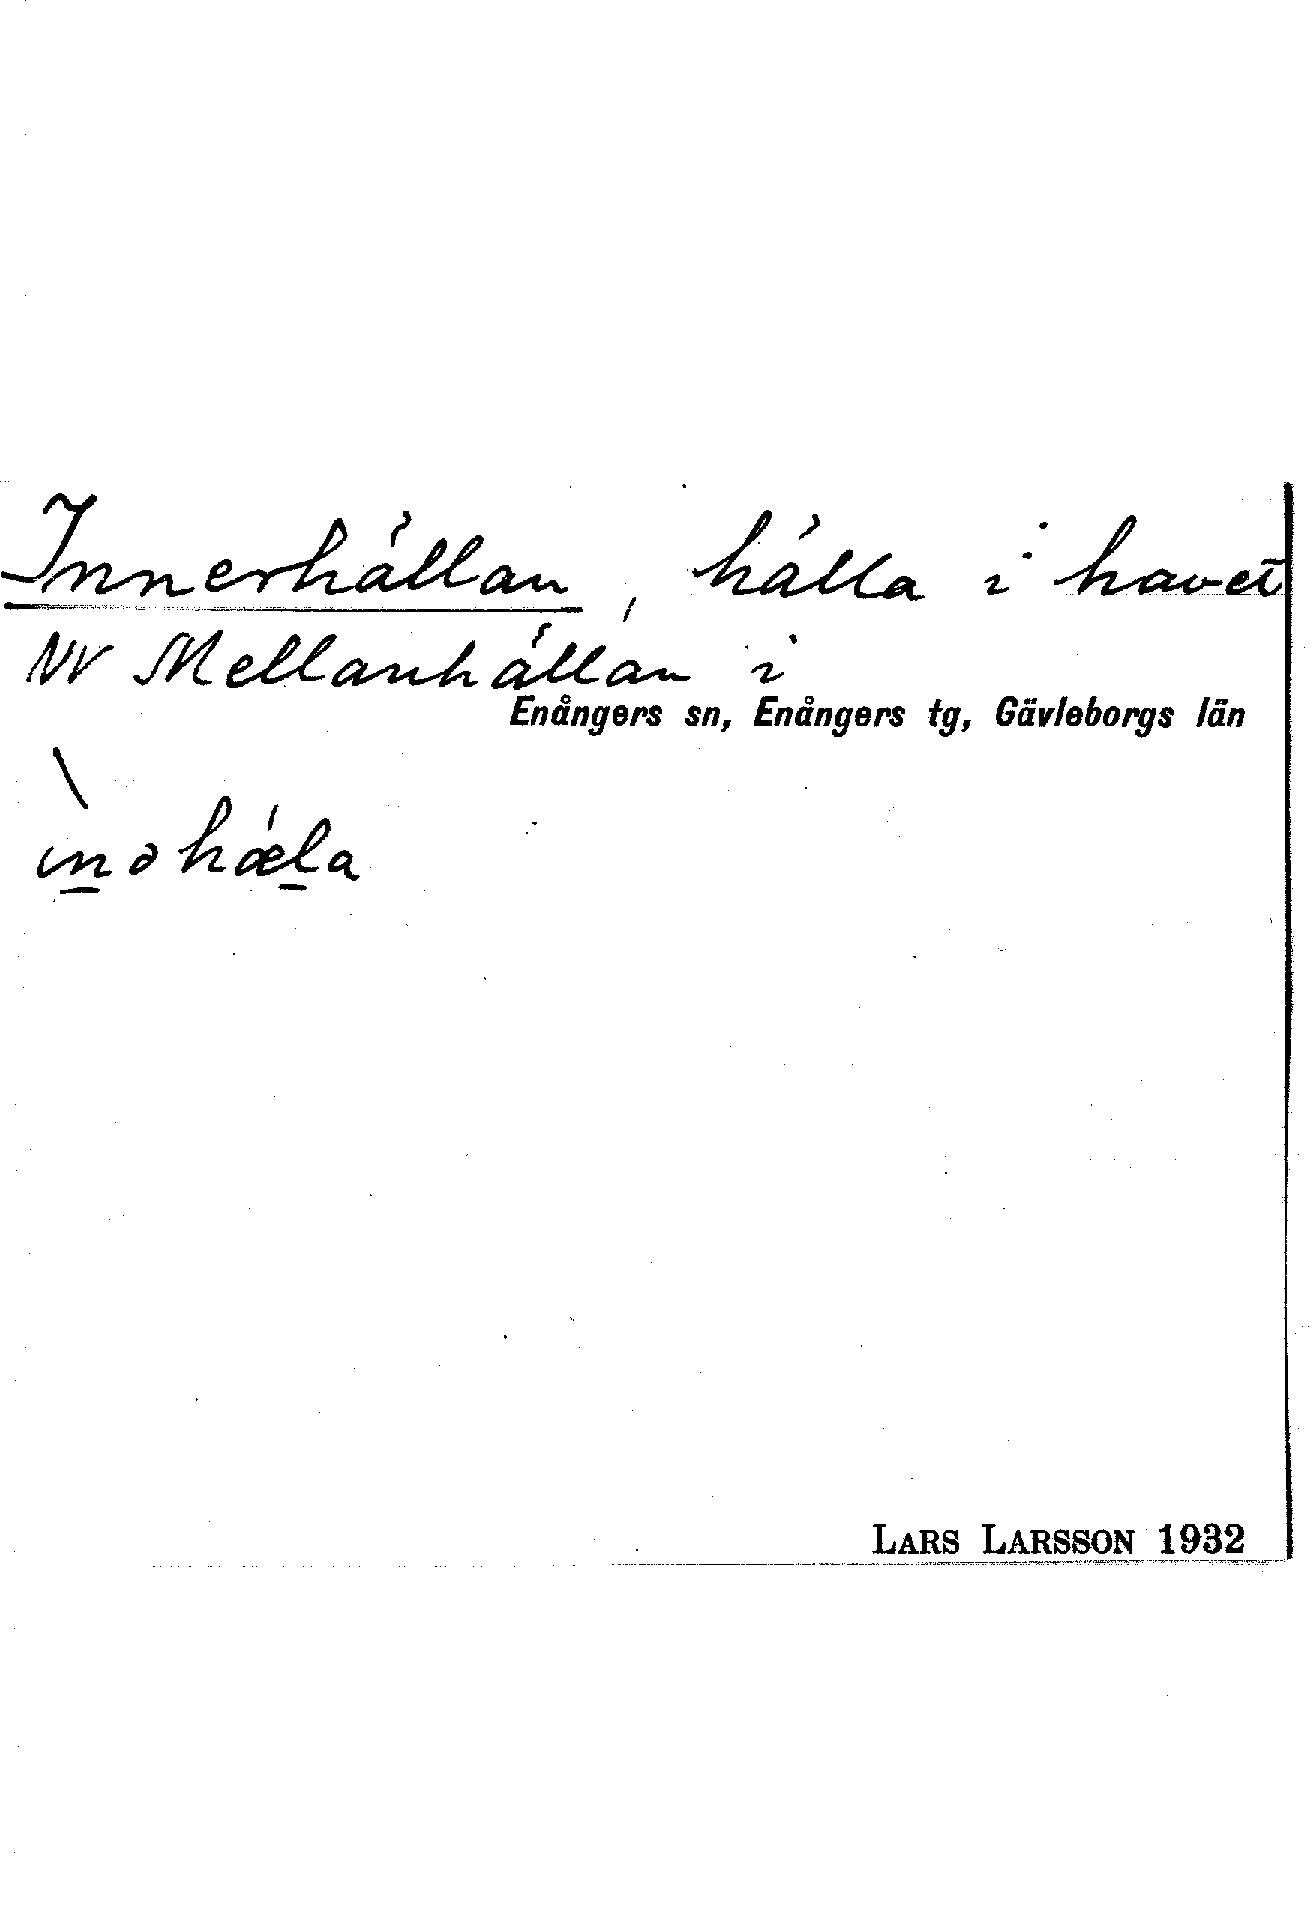 Innerhällan, hälla i havet
NV Mellanhällan i
Enångers sn, Enångers tg, Gävleborgs län
ìnəhǽla
LARS LARSSON 1932